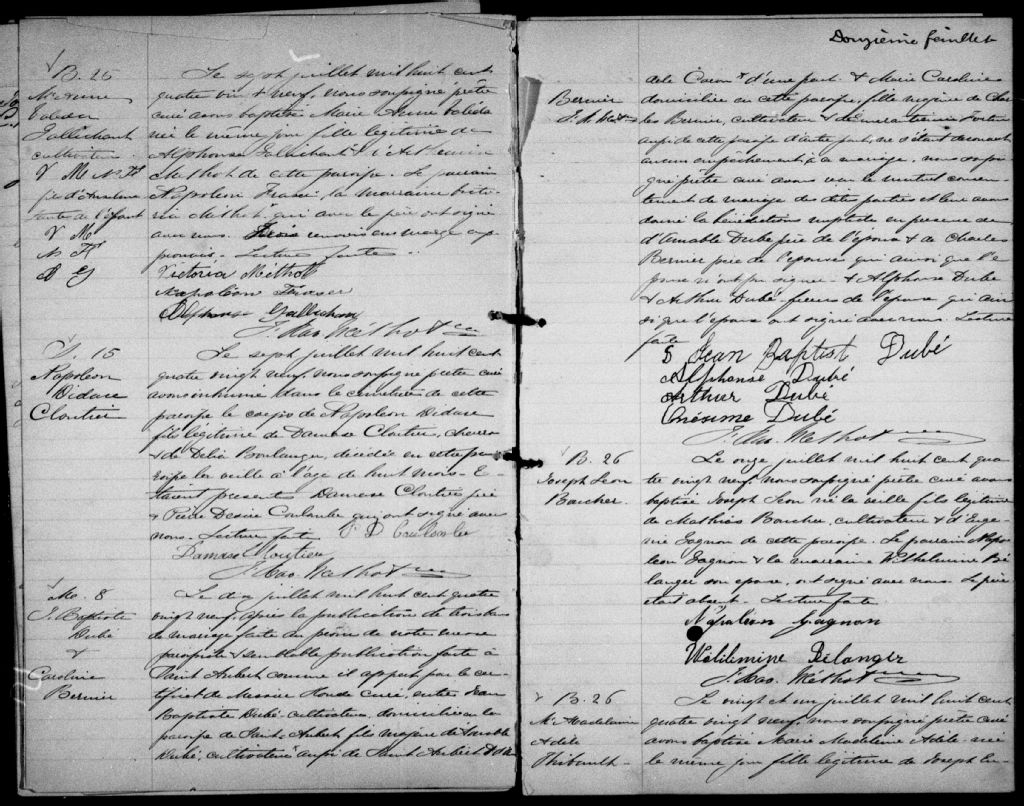 B. 25
M. Anne
Valéda
Gallichant
cultivateur
V M N. F
père d'Anselme
tante de l'enfant
V M
N F
A G
Le sept juillet mil huit cent
quatre vingt neuf, nous soussigné prêtre
curé avons baptisé Marie Anne Valéda
née le même jour fille légitime de
Alphonse Gallichant & d'
Méthot de cette paroisse. Le parrain
Napoléon Fraser, la marraine Victo-
ria Méthot, qui avec le père ont signé
avec nous. Trois renvois en marge ap-
prouvés. Lecture faite.
Victoria Méthot
Napoléon Fraser
Alphonse Gallichan
J. Chas. Méthot
S. 15
Napoléon
Didace
Cloutier
Le sept juillet mil huit cent
quatre vingt neuf, nous soussigné prêtre curé
avons inhumé dans le cimetière de cette
paroisse le corps de Napoléon Didace
fils légitime de Damase Cloutier,
& de Délia Boulanger, décédé en cette pa-
roisse la veille à l'âge de huit mois. E-
taient présents Damase Cloutier père
& Pierre Désiré Coulombe qui ont signé avec
nous. Lecture faite. P. D. Coulombe
Damase Cloutier
J. Chas. Méthot
M. 8
J. Baptiste
Dubé
&
Caroline
Bernier
Le dix juillet mil huit cent quatre
vingt neuf, après la publication de trois bans
de mariage faite au prône de notre messe
paroissiale & semblable publication faite à
Saint Aubert comme il appert par le cer-
tificat de Messire curé, entre Jean
Baptiste Dubé cultivateur, domicilié en la
paroisse de Saint Aubert, fils majeur d'Amable
Dubé, cultivateur aussi de Saint Aubert &
Douzième feuillet
Bernier
dele Caron d'une part & Marie Caroline
domiciliée en cette paroisse, fille mineure de Char-
les Bernier, cultivateur & de Fortin
aussi de cette paroisse d'autre part, ne s'étant découvert
aucun empêchement à ce mariage, nous soussi-
gné prêtre curé avons reçu le mutuel consen-
tement de mariage des dites parties et leur avons
donné la bénédiction nuptiale en présence de
d'Amable Dubé père de l'époux & de Charles
Bernier père de l'épouse qui ainsi que l'é-
pouse n'ont pu signer & d'Alphonse Dubé
& Arthur Dubé frères de l'époux qui ain-
si que l'époux ont signé avec nous. Lecture
faite
Jean Baptist Dubé
Alphonse Dubé
Arthur Dubé
Onésime Dubé
J. Chas. Méthot
B. 26
Joseph Léon
Boucher
Le onze juillet mil huit cent qua-
tre vingt neuf, nous soussigné prêtre curé avons
baptisé Joseph Léon né la veille fils légitime
de Mathias Boucher, cultivateur & d'Eugé-
nie Gagnon de cette paroisse. Le parrain Napo-
léon Gagnon & la marraine Wilhelmine Bé-
langer son épouse, ont signé avec nous. Le père
était absent. Lecture faite.
Napoléon Gagnon
Wilelemine Bélanger
J. Chas. Méthot
B. 26
M. Madeleine
Adèle
Thibault
Le vingt et un juillet mil huit cent
quatre vingt neuf, nous soussigné prêtre curé
avons baptisé Marie Madeleine Adèle née
le même jour fille légitime de Joseph